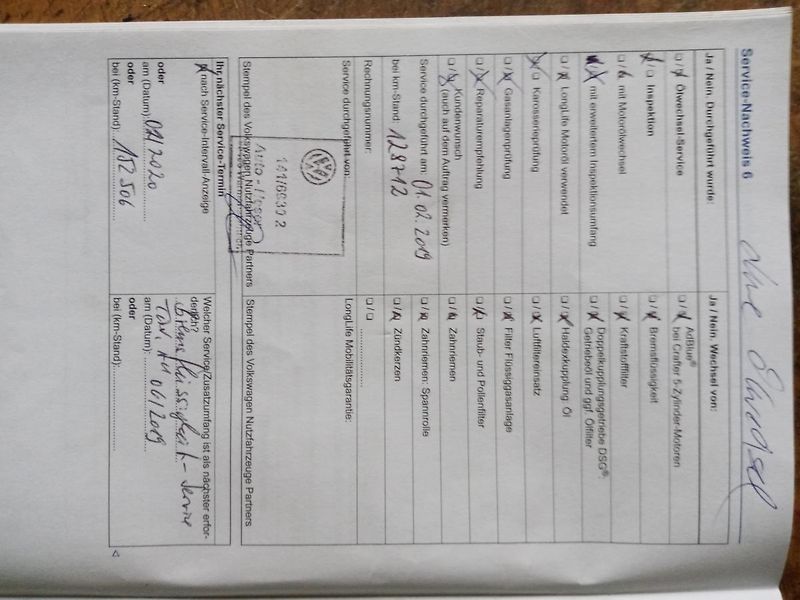 Service-Nachweis 6
Ja / Nein. Durchgeführt wurde:
Ölwechsel-Service
Inspektion
mit Motorölwechsel
mit erweitertem Inspektionsumfang
LongLife Motoröl verwendet
Karosserieprüfung
Gasanlagenprüfung
Reparaturempfehlung
Kundenwunsch
(auch auf dem Auftrag vermerken)
Service durchgeführt am: 01.02.2019
bei km-Stand: 128712
Rechnungsnummer:
Ja / Nein. Wechsel von:
AdBlue®
bei Crafter 5-Zylinder-Motoren
Bremsflüssigkeit
Kraftstofffilter
Doppelkupplungsgetriebe DSG®:
Getriebeöl und ggf. Ölfilter
Haldexkupplung: Öl
Luftfiltereinsatz
Filter Flüssiggasanlage
Staub- und Pollenfilter
Zahnriemen
Zahnriemen: Spannrolle
Zündkerzen
Service durchgeführt von:
Stempel des Volkswagen Nutzfahrzeuge Partners
LongLife Mobilitätsgarantie:
Stempel des Volkswagen Nutzfahrzeuge Partners
Ihr nächster Service-Termin
nach Service-Intervall-Anzeige
oder
am (Datum):
oder
bei (km-Stand): 152 506
Welcher Service/Zusatzumfang ist als nächster erfor-
derlich?
Bremsflüssigkeit-Service
TÜV, AU 06/2019
am (Datum):
oder
bei (km-Stand):